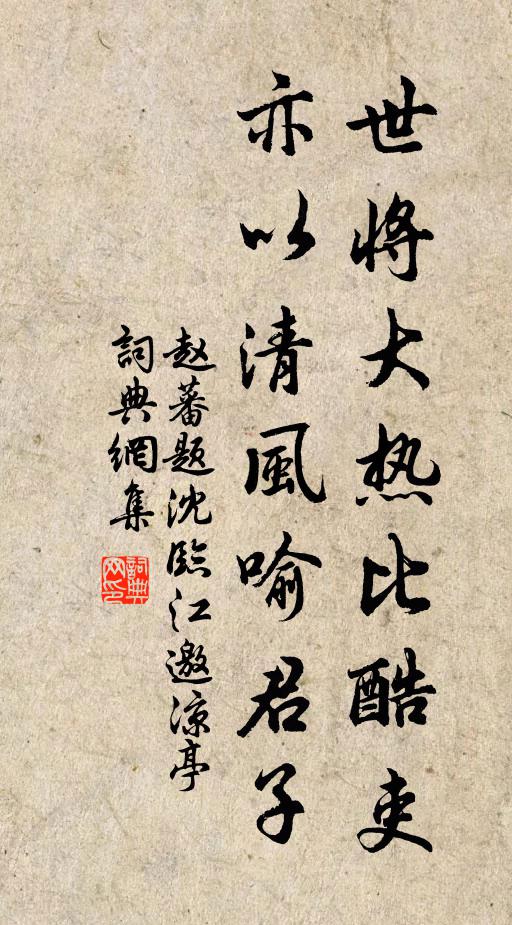 世将大热比酷吏
亦以清風喻君子
赵蕃题沈臨江邀凉亭
詞典網集
詞典網印